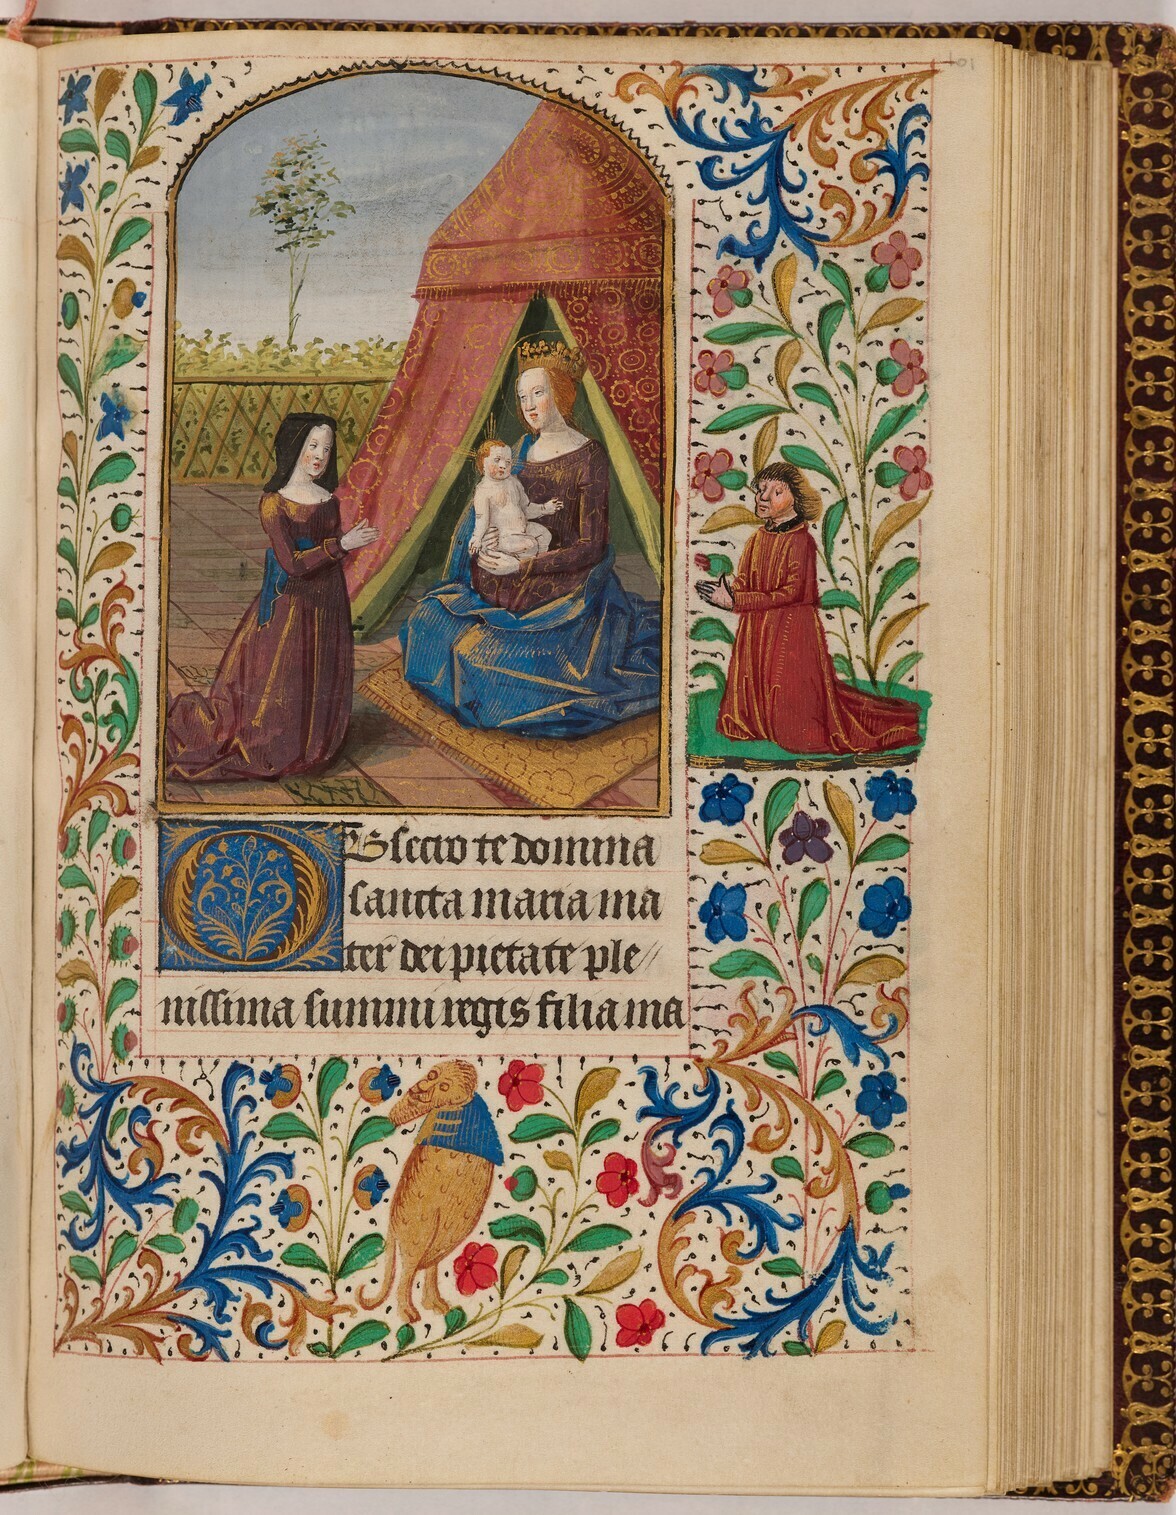 101
Obsecro te domina
sancta maria ma
ter dei pietate ple//
nissima summi regis filia ma